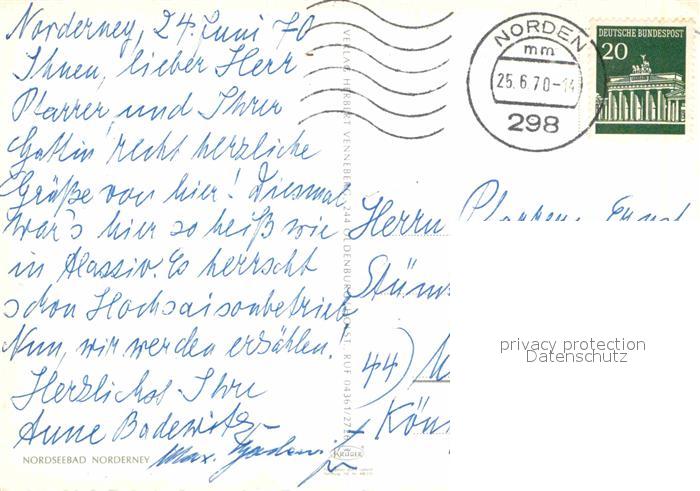 Norderney, 24. Juni 70
Ihnen, lieber Herr
Pfarrer, und Ihrer
Gattin recht herzliche
Grüße von hier! Diesmal
war's hier so heiß wie
in Alassio. Es herrscht
schon Hochsaisonbetrieb
Nun, wir werden erzählen.
Herzlichst Ihre
Anne Badewitz
Max
NORDSEEBAD NORDERNEY
VERLAG HERBERT VENNEBERG 244 OLDENBURG HOLST. RUF 04361/27
KRÜGER
NORDEN
mm
25.6.70-14
298
DEUTSCHE BUNDESPOST
20
Herrn Pfarrer Ernst
44)
privacy protection
Datenschutz